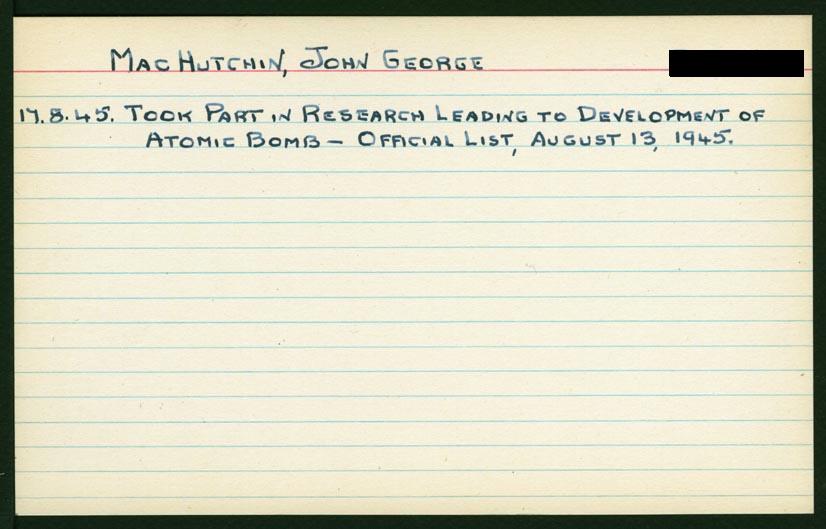 MacHutchin, John George
17.8.45. Took Part in Research Leading to Development of
Atomic Bomb – Official List, August 13, 1945.